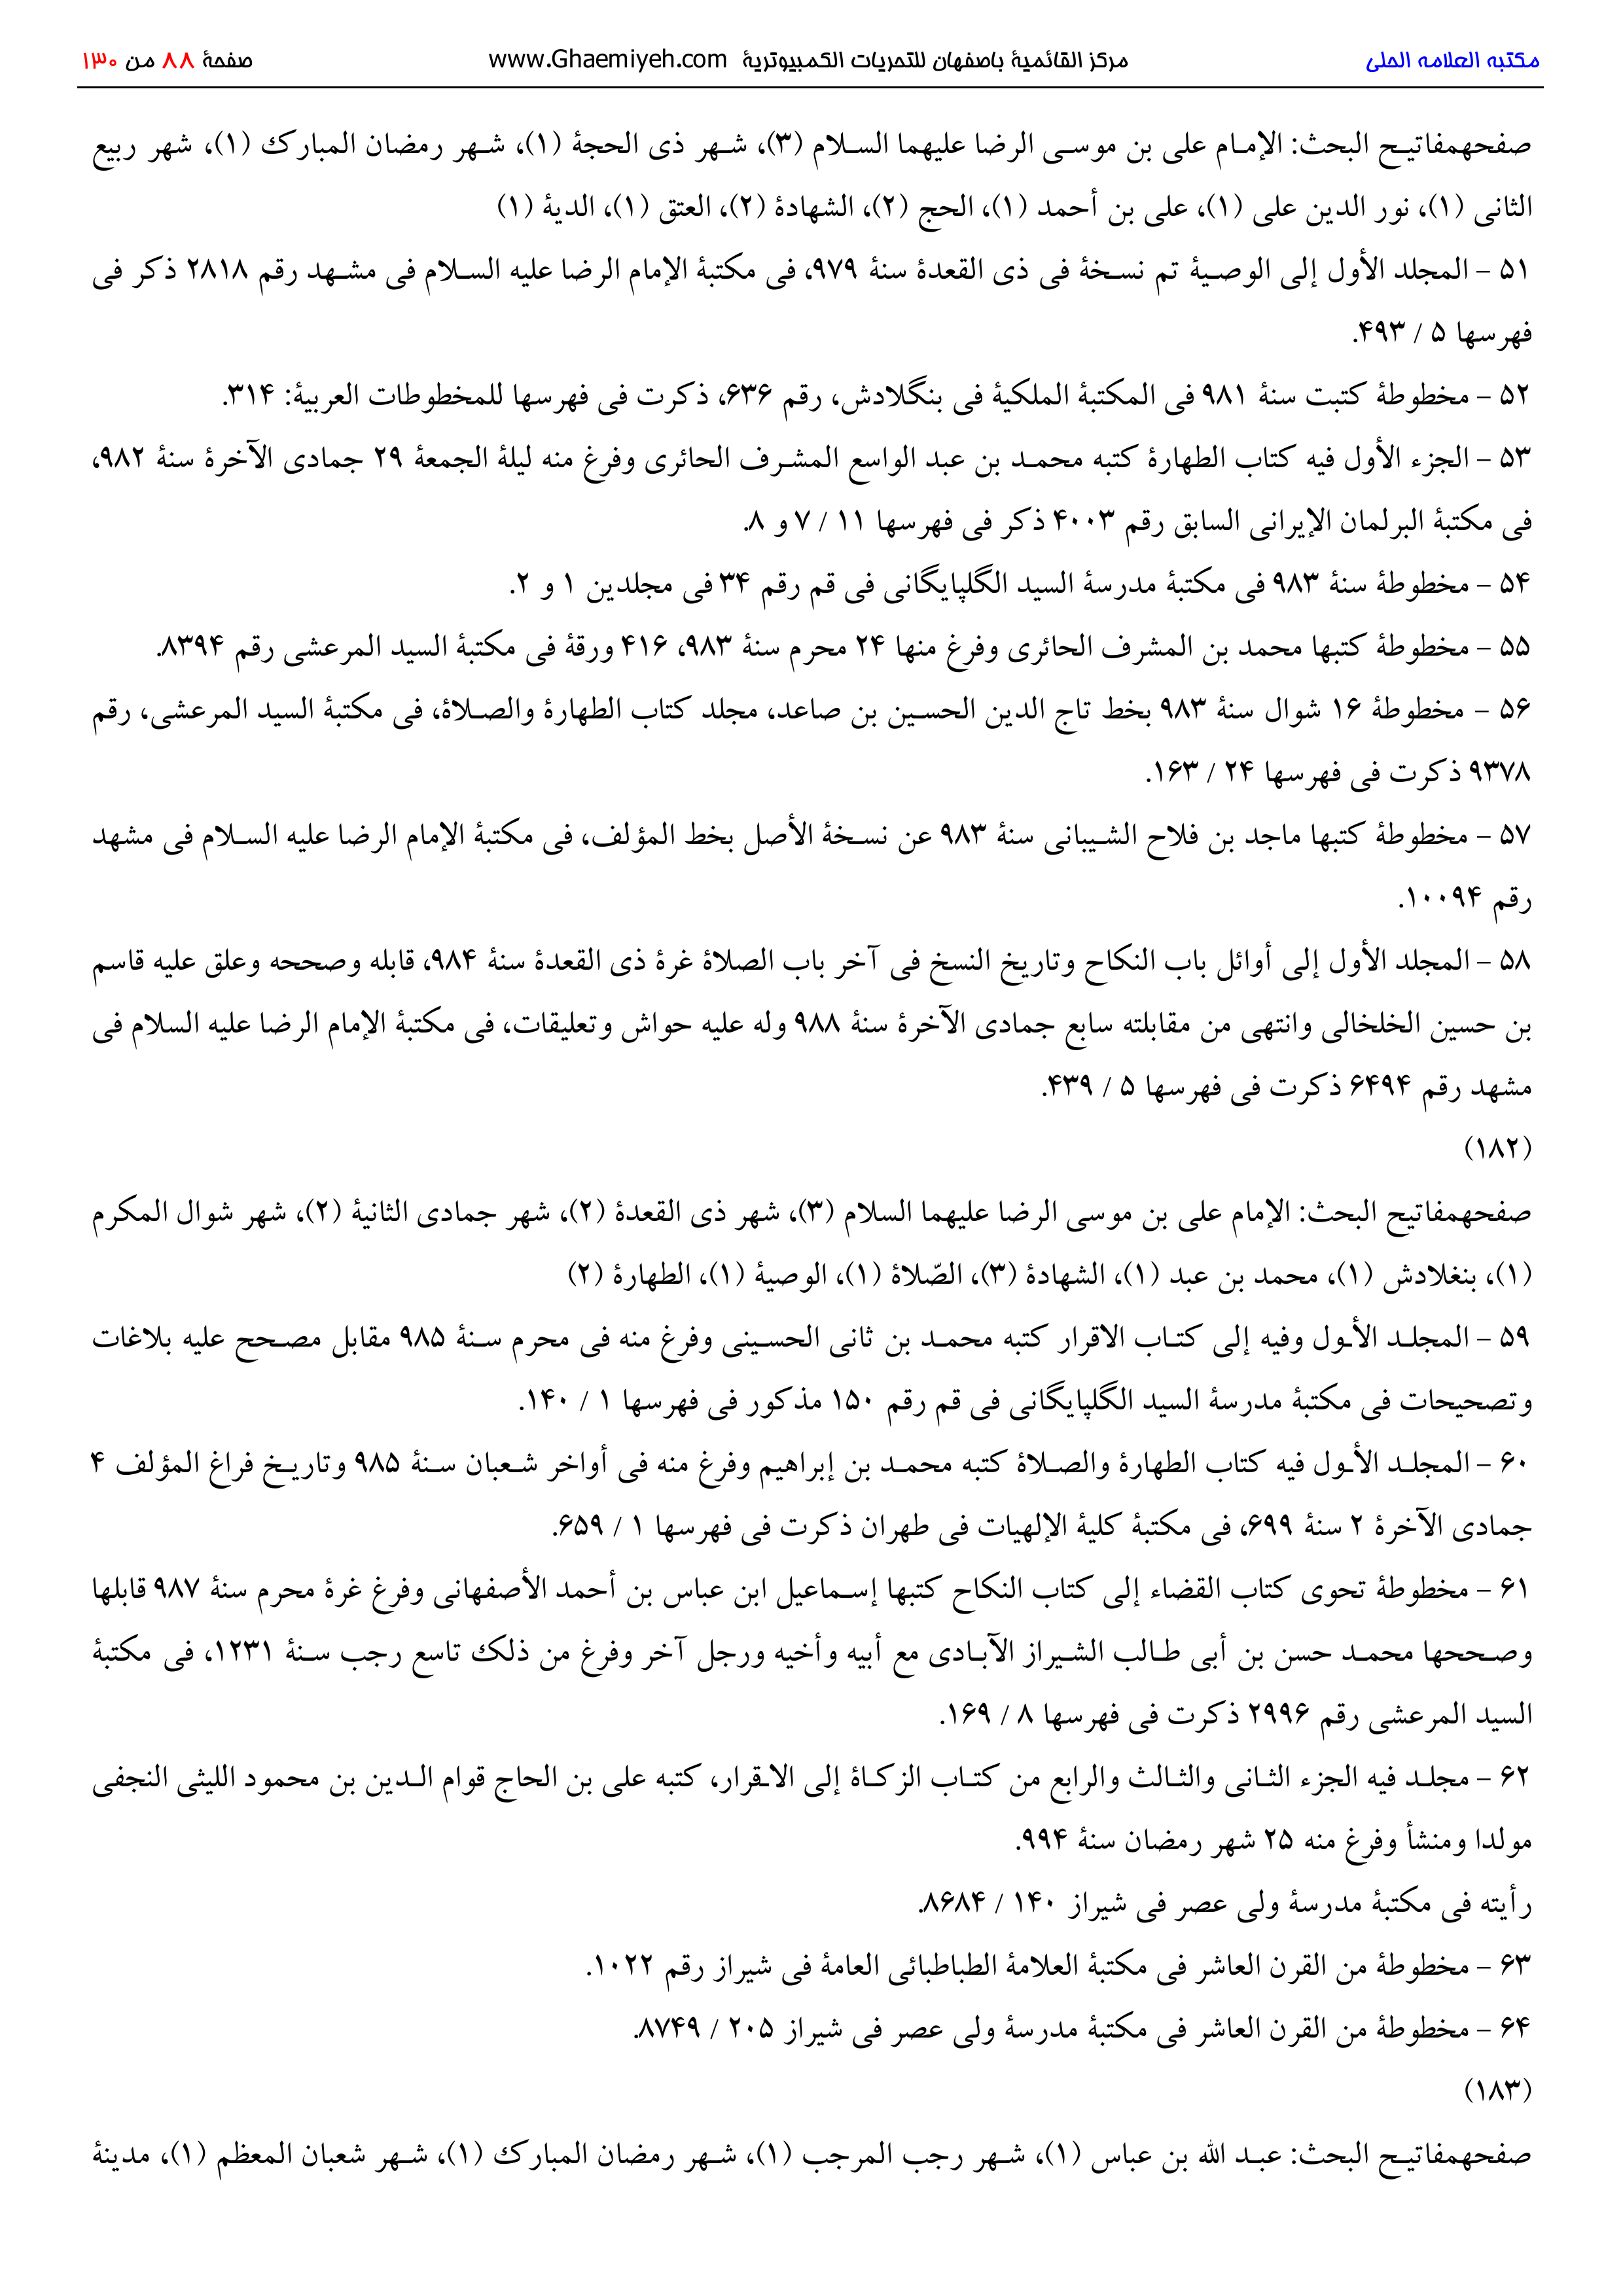 مكتبه العلامه الحلی مركز القائمیۀ باصفهان للتحریات الكمبیوتریۀ www.Ghaemiyeh.com صفحۀ ۸۸ من ۱۳۰
صفحهمفاتیح البحث: الإمام علی بن موسی الرضا علیهما السلام (۳)، شهر ذی الحجۀ (۱)، شهر رمضان المبارك (۱)، شهر ربیع
الثانی (۱)، نور الدین علی (۱)، علی بن أحمد (۱)، الحج (۲)، الشهادۀ (۲)، العتق (۱)، الدیۀ (۱)
۵۱ - المجلد الأول إلی الوصیۀ تم نسخۀ فی ذی القعدۀ سنۀ ۹۷۹، فی مكتبۀ الإمام الرضا علیه السلام فی مشهد رقم ۲۸۱۸ ذكر فی
فهرسها ۵ / ۴۹۳.
۵۲ - مخطوطۀ كتبت سنۀ ۹۸۱ فی المكتبۀ الملكیۀ فی بنگلادش، رقم ۶۳۶، ذكرت فی فهرسها للمخطوطات العربیۀ: ۳۱۴.
۵۳ - الجزء الأول فیه كتاب الطهارۀ كتبه محمد بن عبد الواسع المشرف الحائری وفرغ منه لیلۀ الجمعۀ ۲۹ جمادی الآخرۀ سنۀ ۹۸۲،
فی مكتبۀ البرلمان الإیرانی السابق رقم ۴۰۰۳ ذكر فی فهرسها ۱۱ / ۷ و ۸.
۵۴ - مخطوطۀ سنۀ ۹۸۳ فی مكتبۀ مدرسۀ السید الگلپایگانی فی قم رقم ۳۴ فی مجلدین ۱ و ۲.
۵۵ - مخطوطۀ كتبها محمد بن المشرف الحائری وفرغ منها ۲۴ محرم سنۀ ۹۸۳، ۴۱۶ ورقۀ فی مكتبۀ السید المرعشی رقم ۸۳۹۴.
۵۶ - مخطوطۀ ۱۶ شوال سنۀ ۹۸۳ بخط تاج الدین الحسین بن صاعد، مجلد كتاب الطهارۀ والصلاۀ، فی مكتبۀ السید المرعشی، رقم
۹۳۷۸ ذكرت فی فهرسها ۲۴ / ۱۶۳.
۵۷ - مخطوطۀ كتبها ماجد بن فلاح الشیبانی سنۀ ۹۸۳ عن نسخۀ الأصل بخط المؤلف، فی مكتبۀ الإمام الرضا علیه السلام فی مشهد
رقم ۱۰۰۹۴.
۵۸ - المجلد الأول إلی أوائل باب النكاح وتاریخ النسخ فی آخر باب الصلاۀ غرۀ ذی القعدۀ سنۀ ۹۸۴، قابله وصححه وعلق علیه قاسم
بن حسین الخلخالی وانتهی من مقابلته سابع جمادی الآخرۀ سنۀ ۹۸۸ وله علیه حواش وتعلیقات، فی مكتبۀ الإمام الرضا علیه السلام فی
مشهد رقم ۶۴۹۴ ذكرت فی فهرسها ۵ / ۴۳۹.
(۱۸۲)
صفحهمفاتیح البحث: الإمام علی بن موسی الرضا علیهما السلام (۳)، شهر ذی القعدۀ (۲)، شهر جمادی الثانیۀ (۲)، شهر شوال المكرم
(۱)، بنغلادش (۱)، محمد بن عبد (۱)، الشهادۀ (۳)، الصّلاۀ (۱)، الوصیۀ (۱)، الطهارۀ (۲)
۵۹ - المجلد الأول وفیه إلی كتاب الاقرار كتبه محمد بن ثانی الحسینی وفرغ منه فی محرم سنۀ ۹۸۵ مقابل مصحح علیه بلاغات
وتصحیحات فی مكتبۀ مدرسۀ السید الگلپایگانی فی قم رقم ۱۵۰ مذكور فی فهرسها ۱ / ۱۴۰.
۶۰ - المجلد الأول فیه كتاب الطهارۀ والصلاۀ كتبه محمد بن إبراهیم وفرغ منه فی أواخر شعبان سنۀ ۹۸۵ وتاریخ فراغ المؤلف ۴
جمادی الآخرۀ ۲ سنۀ ۶۹۹، فی مكتبۀ كلیۀ الإلهیات فی طهران ذكرت فی فهرسها ۱ / ۶۵۹.
۶۱ - مخطوطۀ تحوی كتاب القضاء إلی كتاب النكاح كتبها إسماعیل ابن عباس بن أحمد الأصفهانی وفرغ غرۀ محرم سنۀ ۹۸۷ قابلها
وصححها محمد حسن بن أبی طالب الشیراز الآبادی مع أبیه وأخیه ورجل آخر وفرغ من ذلك تاسع رجب سنۀ ۱۲۳۱، فی مكتبۀ
السید المرعشی رقم ۲۹۹۶ ذكرت فی فهرسها ۸ / ۱۶۹.
۶۲ - مجلد فیه الجزء الثانی والثالث والرابع من كتاب الزكاۀ إلی الاقرار، كتبه علی بن الحاج قوام الدین بن محمود اللیثی النجفی
مولدا ومنشأ وفرغ منه ۲۵ شهر رمضان سنۀ ۹۹۴.
رأیته فی مكتبۀ مدرسۀ ولی عصر فی شیراز ۱۴۰ / ۸۶۸۴.
۶۳ - مخطوطۀ من القرن العاشر فی مكتبۀ العلامۀ الطباطبائی العامۀ فی شیراز رقم ۱۰۲۲.
۶۴ - مخطوطۀ من القرن العاشر فی مكتبۀ مدرسۀ ولی عصر فی شیراز ۲۰۵ / ۸۷۴۹.
(۱۸۳)
صفحهمفاتیح البحث: عبد الله بن عباس (۱)، شهر رجب المرجب (۱)، شهر رمضان المبارك (۱)، شهر شعبان المعظم (۱)، مدینۀ